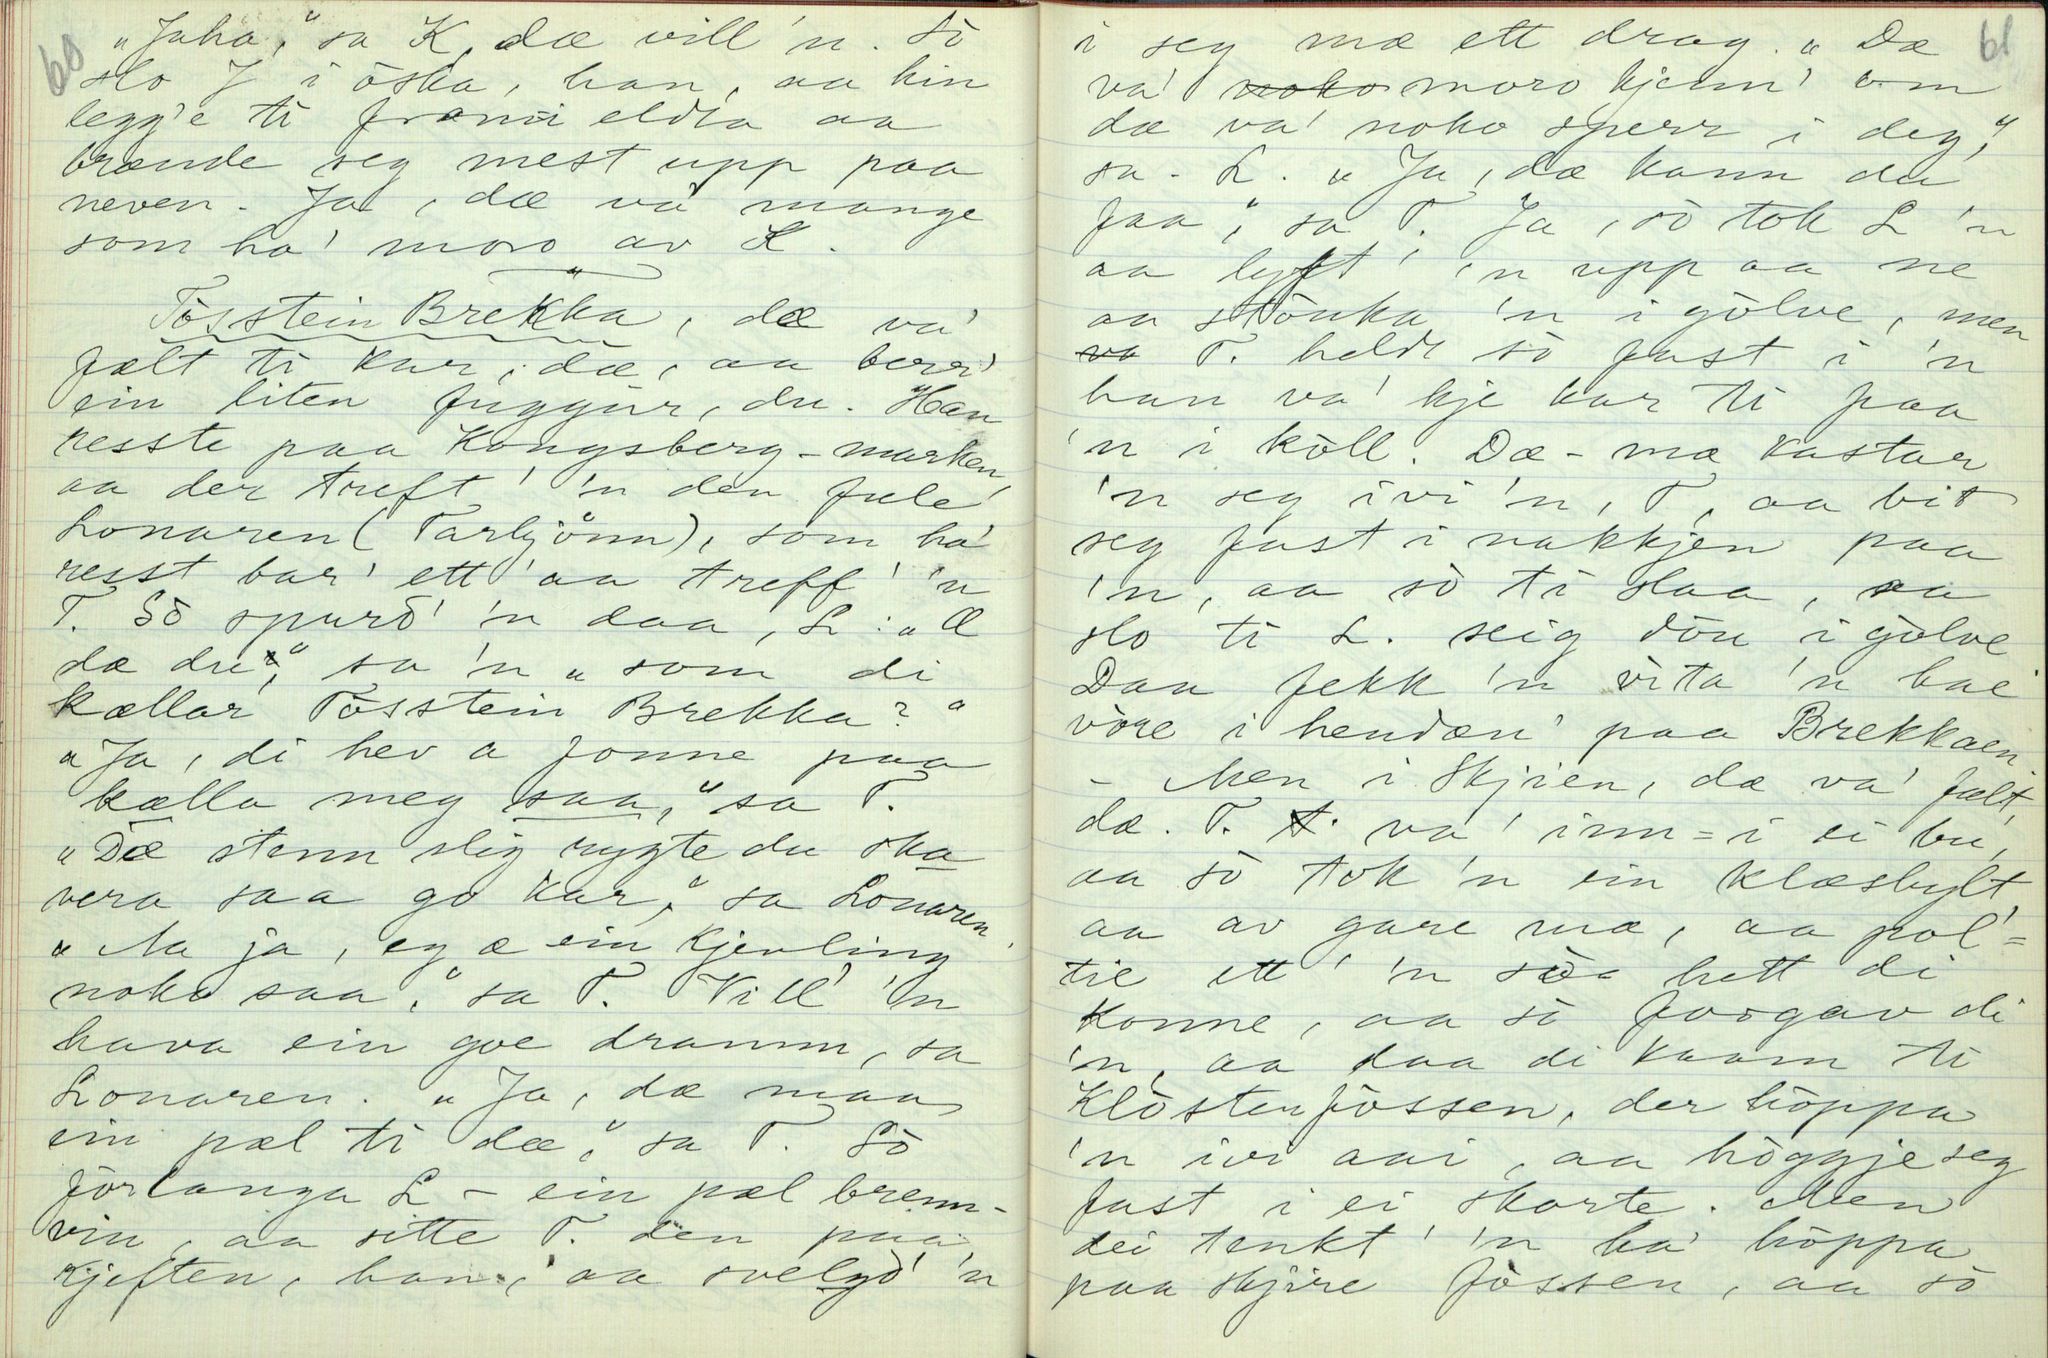 60
„Jaha,“ sa K, dæ vill 'n. Sò
slo J i òska, han, aa hin
legg'e ti framí eldta aa
brænde seg mest upp paa
neven. Ja, dæ va' mange
som ha' moro av K.
Tòsstein Brekka, dæ va'
fælt ti kar, dæ, aa berr'
ein liten fuggúr, du. Han
resste paa Kongsberg-marken,
aa der treft' 'n den fule
Lonaren (Tarkjønn), som ha'
resst bar' ett aa treff' 'n
T. Sò spurd' 'n daa, L: „Æ
dæ du,“ sa 'n „som di
kællar Tòsstein Brekka?“
„Ja, di hev a fonne paa
kælla meg saa,“ sa T.
„Dæ stenn slig rygte du ska
vera saa go kar,“ sa Lonaren.
„Na ja, eg æ ein kjevling
noko saa,“ sa T. Vill' 'n
hava ein goe dramm, sa
Lonaren. „Ja, dæ maa
ein pæl ti dæ,“ sa T. Sò
fòrlanga L - ein pæl brenn-
vin, aa sitte T. den paa
kjeften, han, aa svelgd' 'n
61
i seg mæ ett drag. „Dæ
va' noko moro kjenn' om
dæ va' noko sperr i deg,“
sa L. „Ja, dæ kann du
faa,“ sa T. Ja, sò tok L 'n
aa lyft' 'n upp aa ne
aa stònka 'n i gòlve, men
va T. heldt sò fast i 'n
han va' kje kar ti faa
'n i kòll. Dæ-mæ kastar
'n seg ivi 'n, T, aa bit
seg fast i nakkjen paa
'n, aa sò ti slaa, aa
slo ti L. seig dòu i gòlve
Daa fekk 'n vita 'n hae
vòre i hendæn' paa Brekkaen
- Men i Skjien, dæ va' fælt,
dæ. T. va' inn-i ei bu,
aa sò tok 'n ein klæsbylt
aa av gare mæ, aa pol'=
tie ett 'n sòa hett di
konne, aa sò forgav di
'n, aa daa di kaam ti
Klòsterfòssen, der hòppa
'n ivi aai, aa hòggje seg
fast i ei skorte. Men
dei tenkt' 'n ha' hòppa
paa skjire fòssen, aa sò